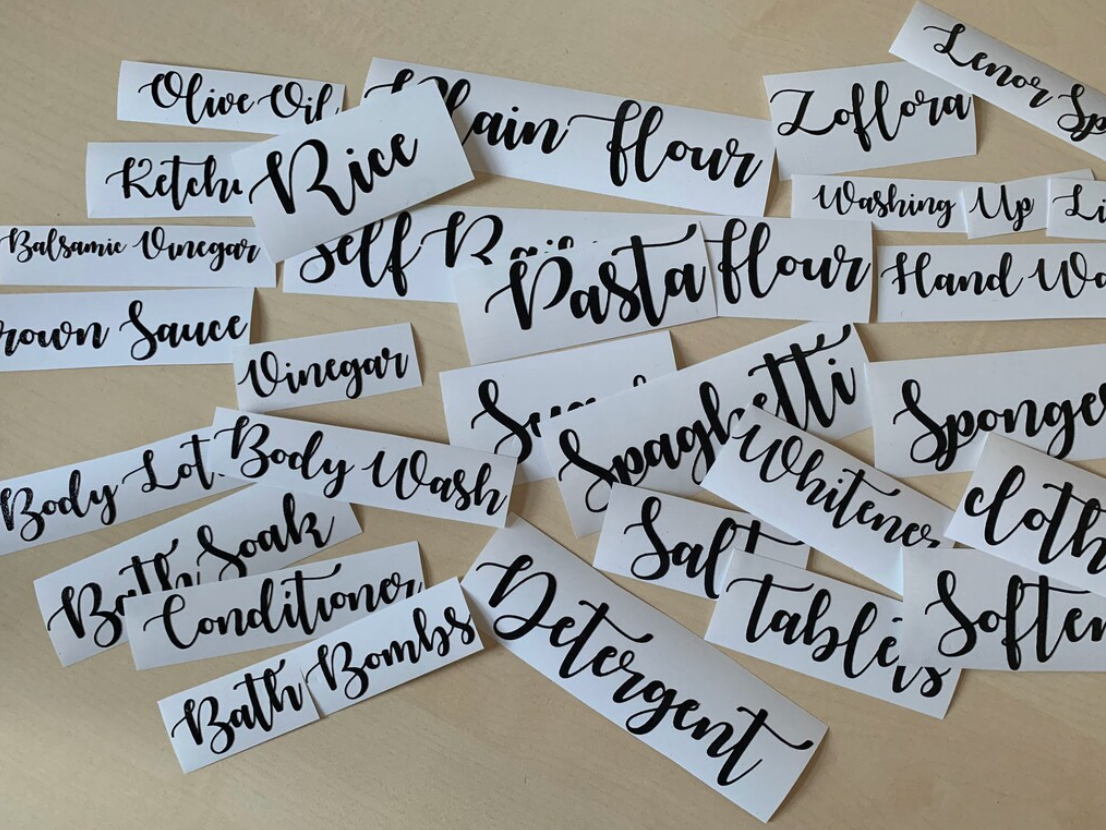 Lenor Sp
Olive Oil
Plain flour
Zoflora
Ketchu
Rice
Washing Up Li
Balsamic Vinegar
Self R
Pasta
flour
Hand Wa
rown Sauce
Vinegar
Spaghetti
Sponge
Body Lot
Body Wash
Whitener
cloth
Bath Soak
Salt
Conditioner
Tablets
Soften
Bath Bombs
Detergent